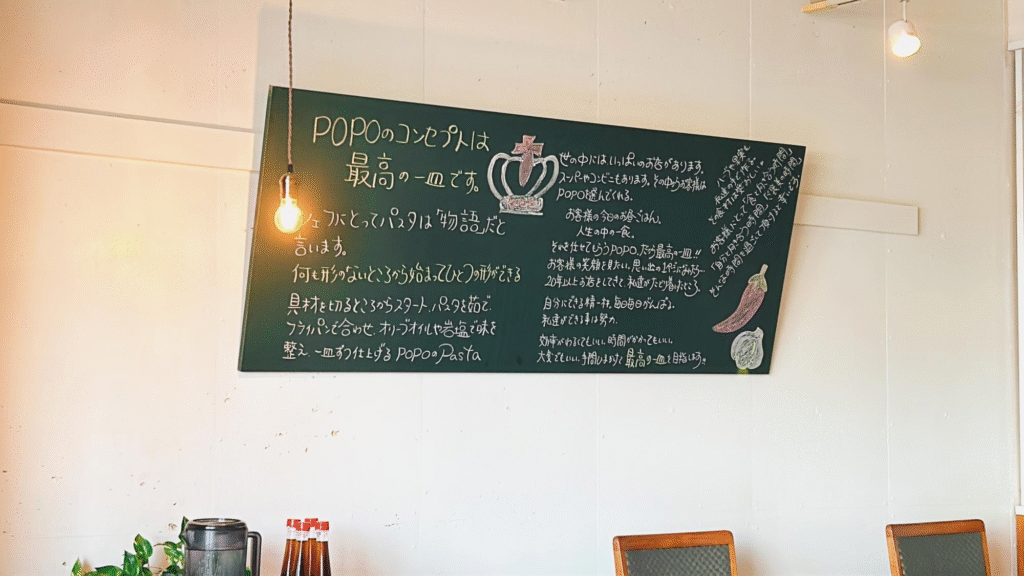 POPOのコンセプトは
最高の一皿です。
シェフにとってパスタは「物語」だと
言います。
何も形のないところから始まってひとつの形ができる
具材を切るところからスタート、パスタを茹で、
フライパンで合わせ、オリーブオイルや岩塩で味を
整え 一皿ずつ仕上げる POPOのPasta
世の中にはいっぱいのお店があります。
スーパーやコンビニもあります。その中からお客様は
POPOを選んでくれる。
お客様の今日のお昼ごはん。
人生の中の一食。
それを任せてもらうPOPO。だから最高の一皿!!
お客様の笑顔を見たい。思い出の1ページになれたら…
20年以上お店をしてきて、私達がたどり着いたところ。
自分にできる精一杯、毎日毎日がんばる。
私達ができる事は努力。
効率がわるくてもいい。時間がかかってもいい。
大変でもいい。手間ひまかけて最高の一皿を目指します。